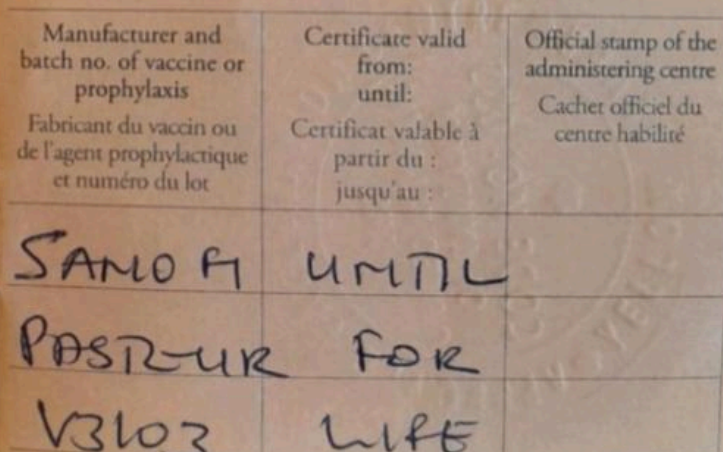 Manufacturer and
batch no. of vaccine or
prophylaxis
Fabricant du vaccin ou
de l'agent prophylactique
et numéro du lot
Certificate valid
from:
until:
Certificat valable à
partir du :
jusqu'au :
Official stamp of the
administering centre
Cachet officiel du
centre habilité
SANOFI UNTIL
PASTEUR FOR
V3102 LIFE